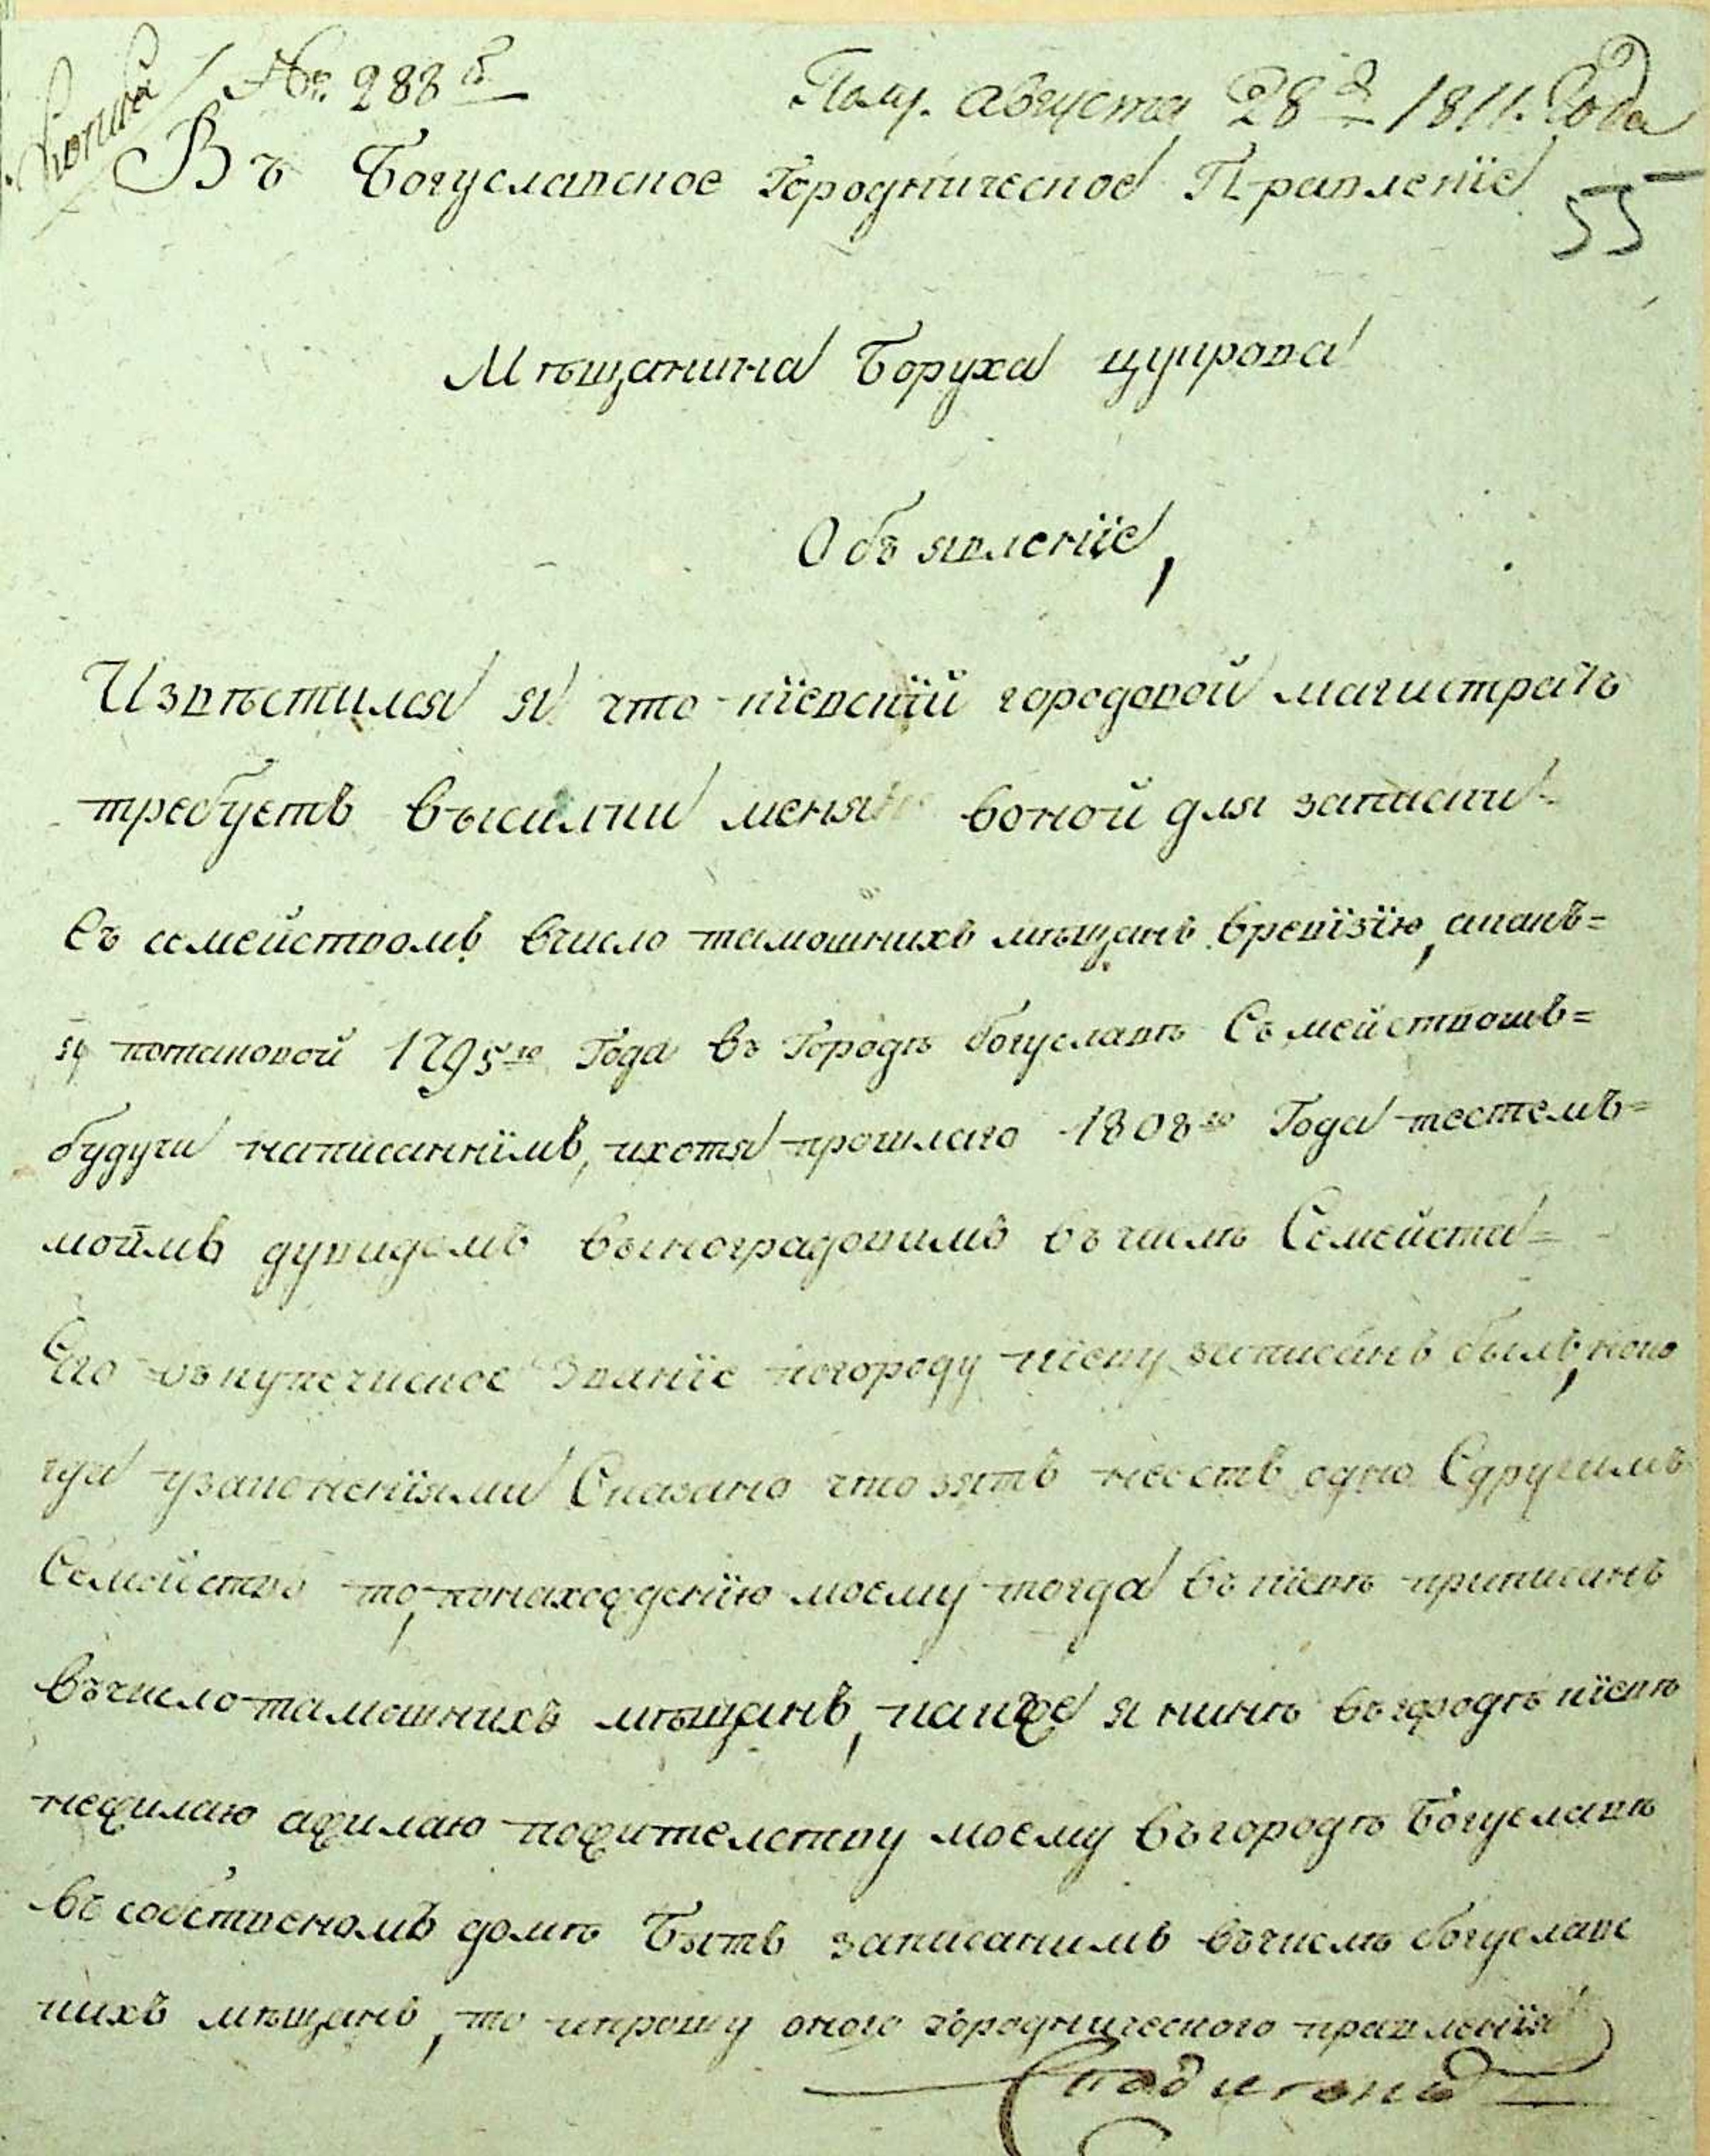 Копия
№ 288й
Полу. августа 28д 1811. Года
Въ Богуславское Городническое Правленїе
55
Мѣщанина Боруха цуцрова
Объявленїе,
Извѣстился я что кїевскїй городовой магистратъ
требуетъ высилки меня воной для записки-
Съ семействомъ вчисло тамошнихъ мѣщанъ вревїзїю, акакъ=
я потаковой 1795го Года въ Городѣ богуславѣ Съ мействомъ=
будучи написаннїмъ, ихотя прошлаго 1808го Года тестемъ=
моимъ дувидомъ выноградовимъ въ числѣ Семейства=
Его въкупечиское Званїе погороду кїеву записанъ былъ, ноко
гда узаконенїями Сказано что зять неесть одно Сдругимъ
Семейство то, понахожденїю моему тогда въкїевѣ приписанъ
въчисло тамошнихъ мѣщанъ, какже я нинѣ въгородѣ кїевѣ
нежилаю ажилаю пожителству моему въгородѣ Богуславѣ
въ собственомъ домѣ Бытъ записанимъ въчислѣ богуславс
кихъ мѣщанъ, то ипрошу оного городническаго правленїя